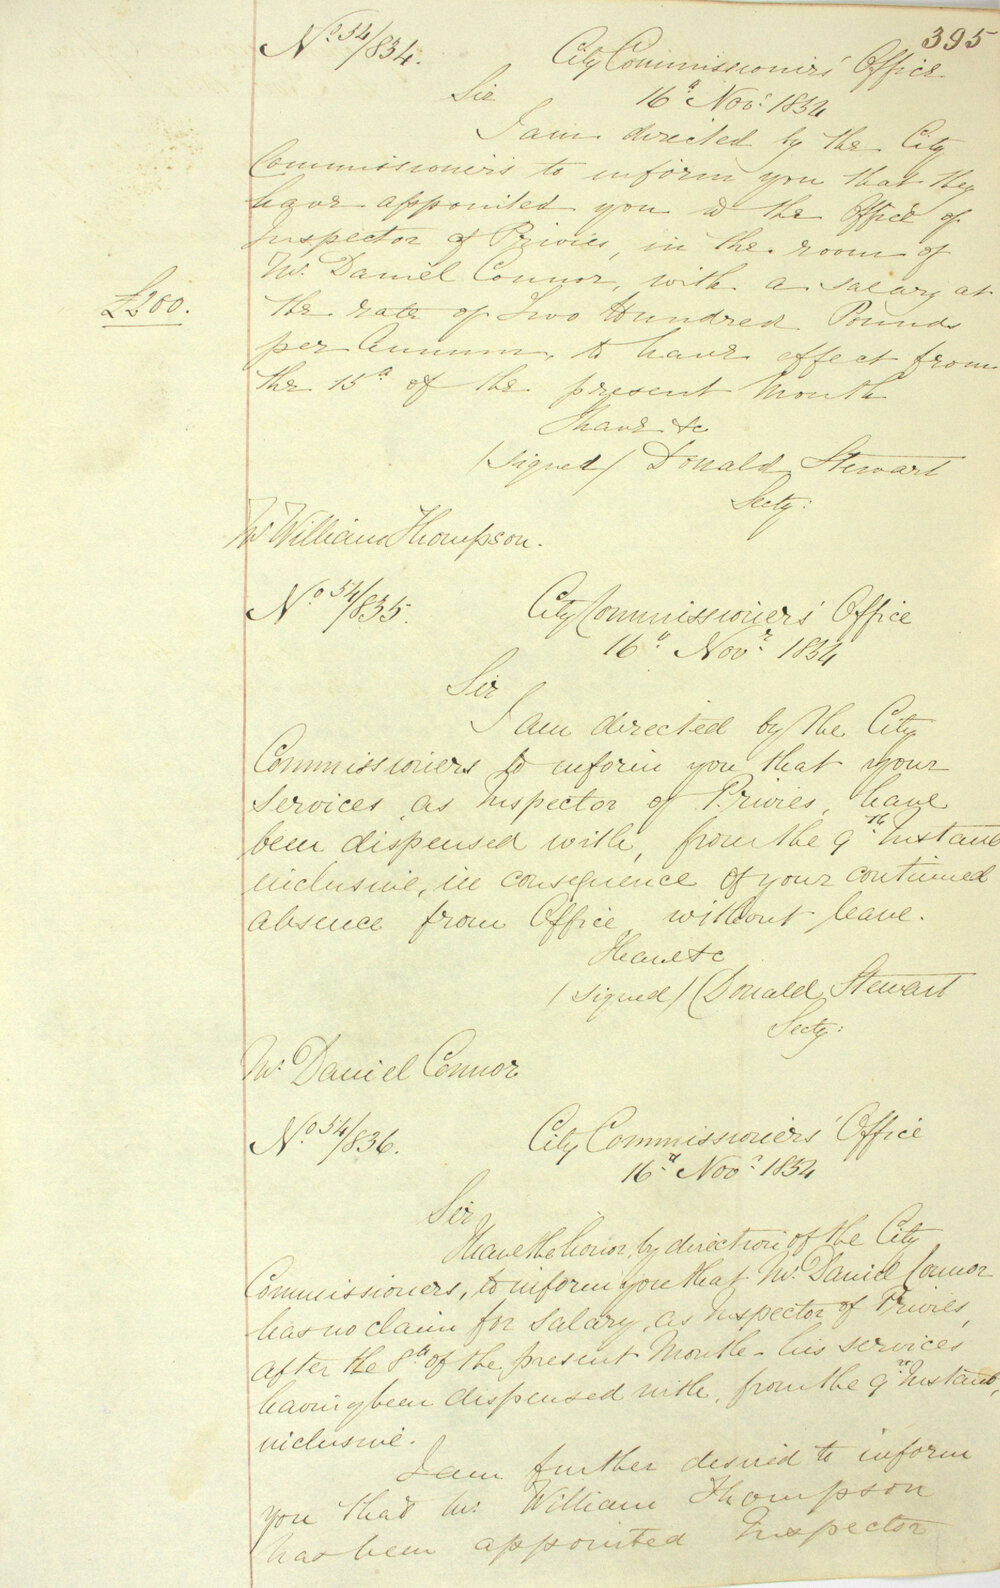 395
No. 54/834.
City Commissioners' Office
16th Novr. 1854
Sir
I am directed by the City
Commissioners to inform you that they
have appointed you to the Office of
Inspector of Privies, in the room of
Mr. Daniel Connor, with a salary at
£200.
the rate of Two Hundred Pounds
per Annum, to have effect from
the 15th of the present Month
I have &c
(signed) Donald Stewart
Secty:
Mr William Thompson.
No. 54/835.
City Commissioners' Office
16th Novr. 1854
Sir
I am directed by the City
Commissioners to inform you that your
Services, as Inspector of Privies, have
been dispensed with, from the 9th Instant
inclusive, in consequence of your continued
absence from Office without leave.
I have &c
(signed) Donald Stewart
Secty:
Mr. Daniel Connor
No. 54/836.
City Commissioners' Office
16th Novr. 1854
Sir
I have the honor, by direction of the City
Commissioners, to inform you that Mr. Daniel Connor
has no claim for Salary, as Inspector of Privies,
after the 8th of the present Month - his services
having been dispensed with, from the 9th Instant,
inclusive.
I am further desired to inform
you that Mr. William Thompson
has been appointed Inspector